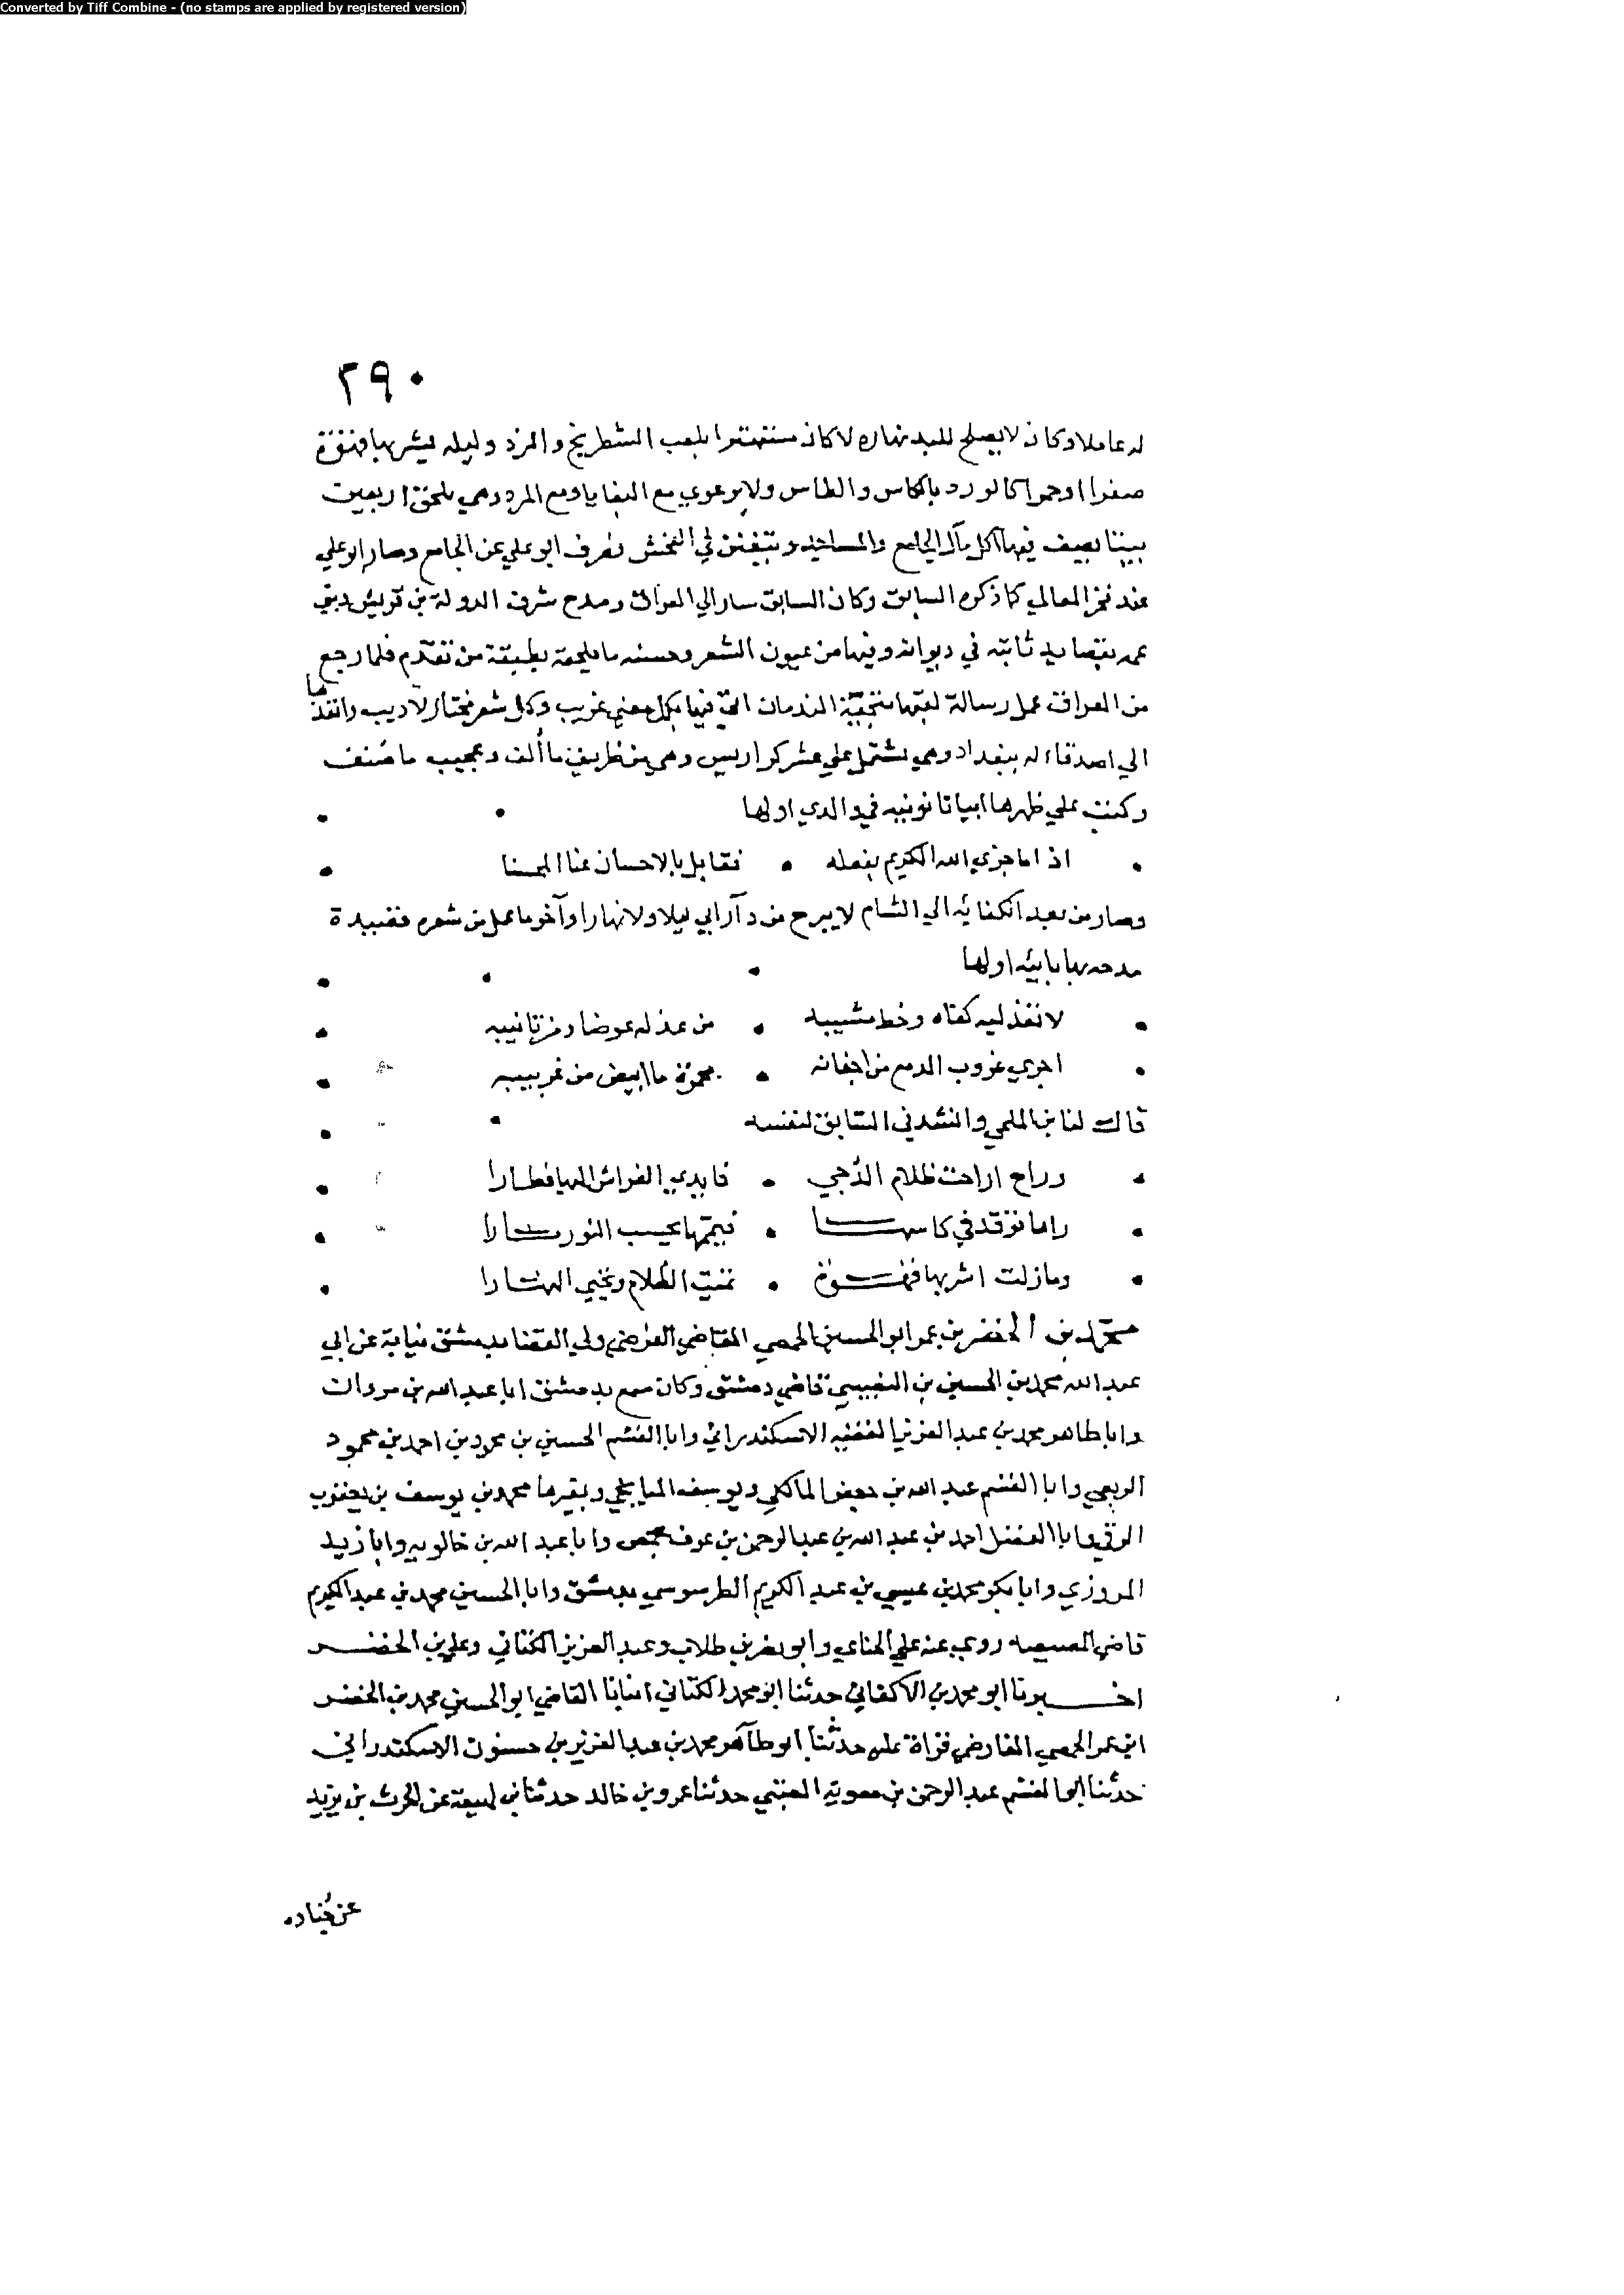 Converted by Tiff Combine - (no stamps are applied by registered version)
٢٩٠
له عاملا وكان لا يصلح للبد نهاره لا كان مستهترا بلعب الشطرنج والنرد وليله يشربها قهوة
صفرا او حمرا كالورد بالكاس والطاس ولا يرعوي مع البغايا ومع المرد وهي تلحق اربعين
بيتا يصيف فيها اكل مال الجامع والمساجد ويتفنن في الفحش فصرف ابو علي عن الجامع وصار ابو علي
عند فخر المعالي كما ذكره السابق وكان السابق سار الي العراق ومدح شرف الدولة بن قريش وبني
عمه بقصايد ثابته في ديوانه وفيها من عيون الشعر وحسنه ما يلحقه بطبقة من تقدم فلما رجع
من العراق عمل رسالة لقبها بتحية الندمان اتي فيها بكل معني غريب وكل شعر مختار لاديب وانفذها
الي اصدقاء له ببغداد وهي تشتمل علي عشر كراريس وهي من ظريف ما ألف وعجيب ما صنف
وكتب علي ظهرها ابياتا نونيه في والدي اولها
اذا ما جزي الله الكريم بفعله • تقابل بالاحسان عنا المحسنا
وصار من بعد انكفائه الي الشام لا يبرح من دار ابي ليلا ولا نهارا وآخر ما عمل من شعره قصيدة
مدحه بها بابيه اولها
لا تعذليه كفاه وخط مشيبه • من عذله عوضا ومن تانيبه
اجري غروب الدمع من اجفانه • محمرة ما ابيض من غربيبه
قال لنا بن الملحي وانشدني السابق لنفسه
وراح ازاحت ظلام الدجي • فابدي الفراش اليها فطارا
راها توقد في كاسهـــا • فيممها يحسب النور نـــارا
ومازلت اشربها قهـــوة • تميت الظلام وتحيي النهـــارا
محمد بن الخضر بن عمر ابو الحسين الحمصي القاضي الفرضي ولي القضا بدمشق نيابة عن ابي
عبد الله محمد بن الحسين بن النصيبي قاضي دمشق وكان سمع بدمشق ابا عبد الله بن مروان
وابا طاهر محمد بن عبد العزيز الفقيه الاسكندراني وابا القسم الحسين بن محمود بن احمد بن محمود
الربعي وابا القسم عبد الله بن جعفر المالكي ويوسف الميانجي وبغيرها محمد بن يوسف بن يعقوب
الرقي وابا الفضل احمد بن عبد الله بن عبد الرحمن بن عوف بحمص وابا عبد الله بن خالويه وابا زيد
المروزي وابا بكر محمد بن عيسي بن عبد الكريم الطرسوسي بدمشق وابا الحسين محمد بن عبد الكريم
قاضي المصيصه روي عنه علي الحنائي وابو نصر بن طلاب وعبد العزيز الكتاني وعلي بن الخضـــر
اخـــبرنا ابو محمد بن الاكفاني حدثنا ابو محمد الكتاني انبانا القاضي ابو الحسين محمد بن الخضر
ابن عمر الحمصي الفارضي قراة عليه حدثنا ابو طاهر محمد بن عبد العزيز بن حسنون الاسكندراني
حدثنا ابو القسم عبد الرحمن بن معوية العتبي حدثنا عمرو بن خالد حدثنا بن لهيعة عن الحرث بن يزيد
عن جناده